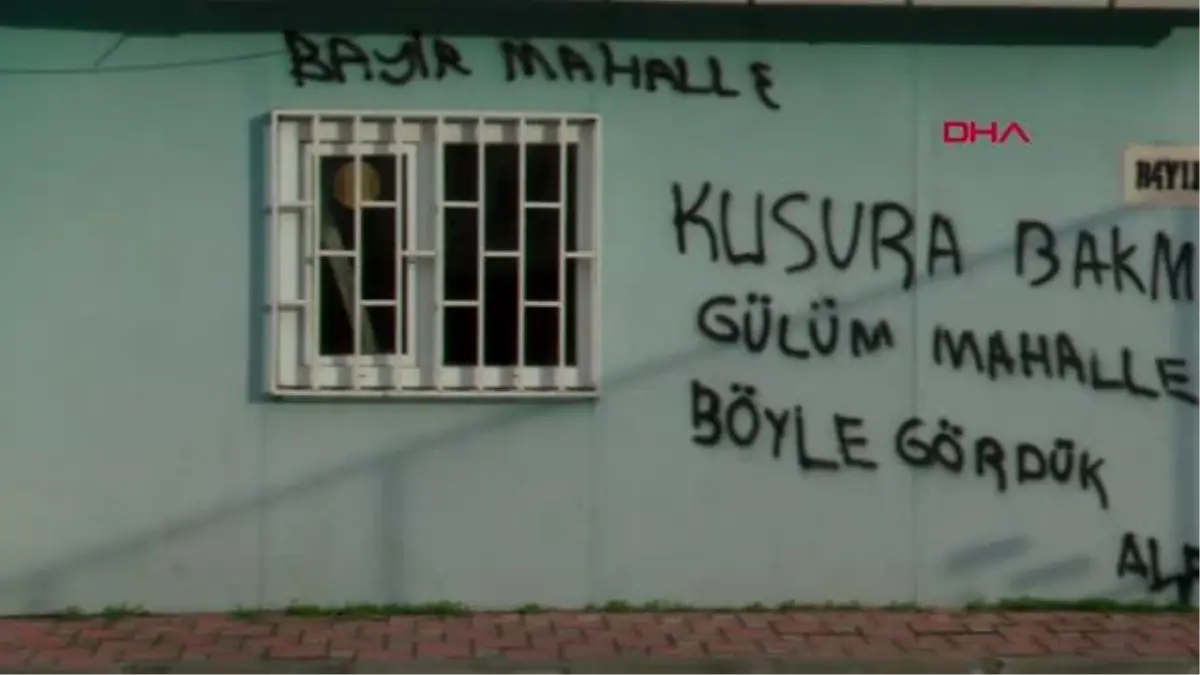 BAYIR MAHALLE
DHA
BAYI
KUSURA BAKM
GÜLÜM MAHALLE
BÖYLE GÖRDÜK